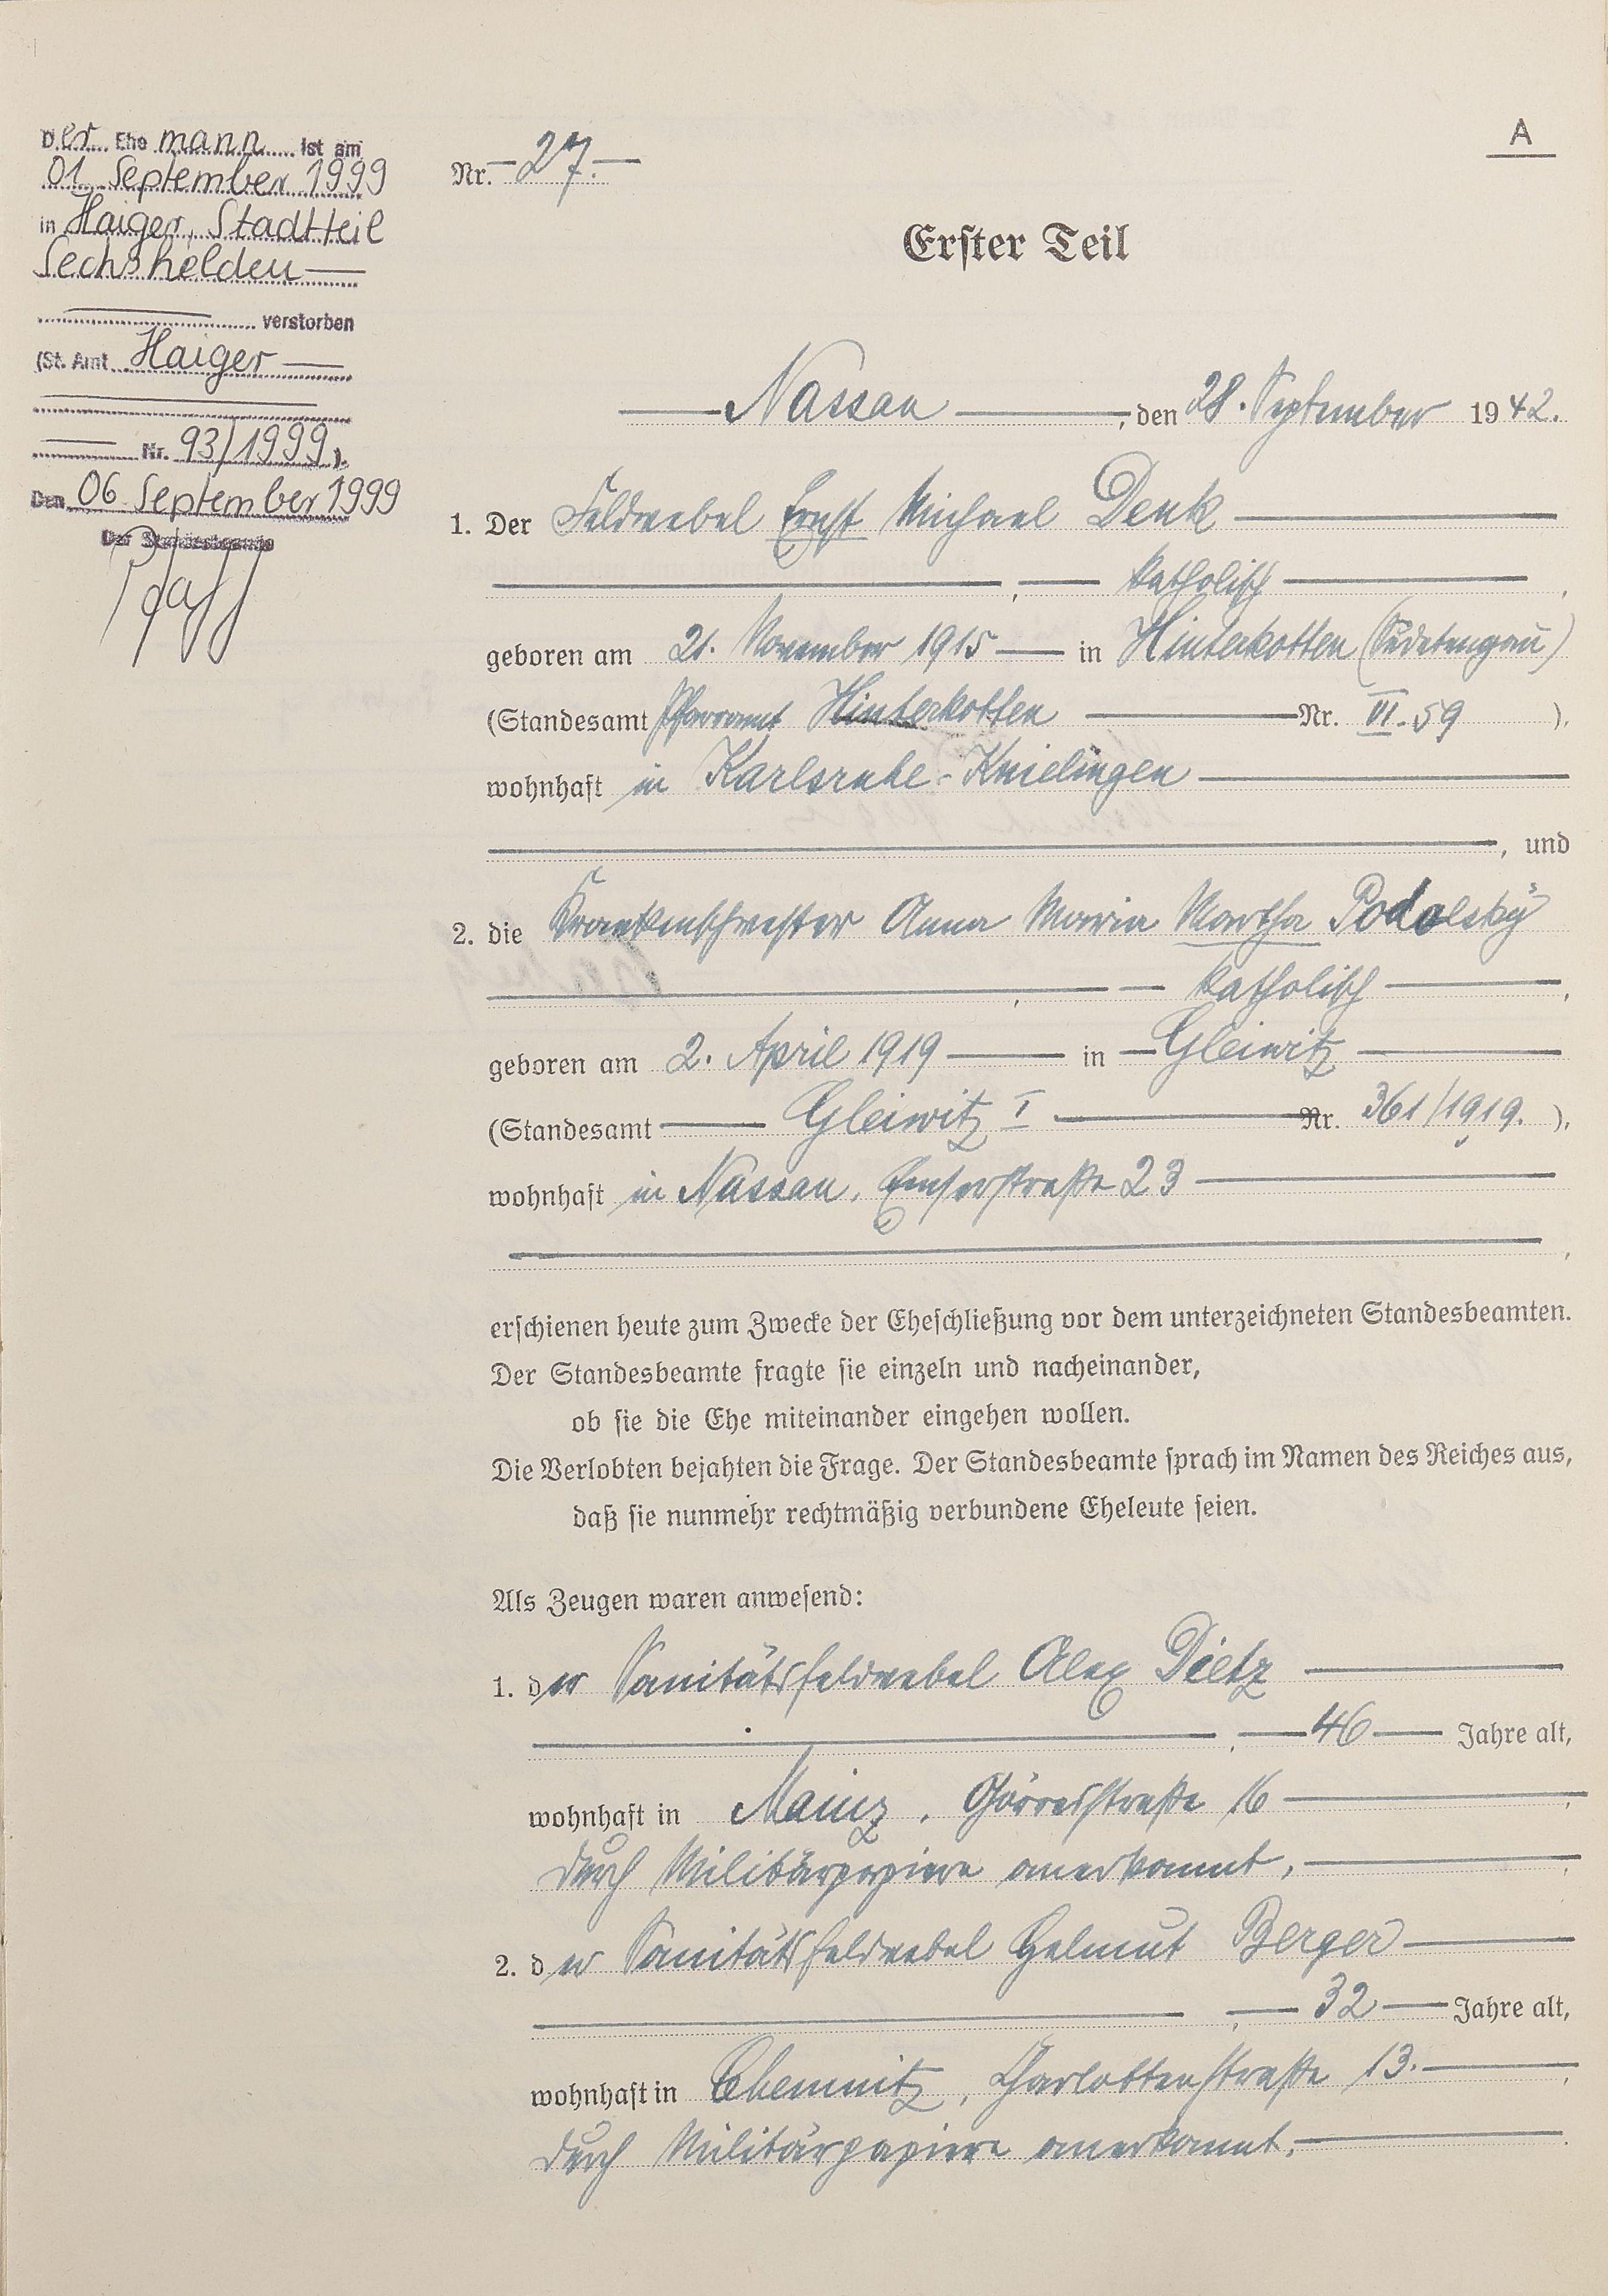 Der Ehe mann ist am
01. September 1999
in Haiger, Stadtteil
Sechshelden
verstorben
(St. Amt Haiger
Nr. 93/1999).
Den 06. September 1999
Der Standesbeamte
A
Nr. 27.
Erster Teil
Nassau, den 28. September 1942.
1. Der Feldwebel Ernst Michael Denk
, katholisch,
geboren am 21. November 1915 in Hinterkotten (Sudetengau)
(Standesamt Pfarramt Hinterkotten Nr. VI. 59),
wohnhaft in Karlsruhe-Knielingen
, und
2. die Krankenschwester Anna Maria Martha Podolsky
, katholisch,
geboren am 2. April 1919 in Gleiwitz
(Standesamt Gleiwitz I Nr. 361/1919.),
wohnhaft in Nassau, Emserstraße 23
,
erschienen heute zum Zwecke der Eheschließung vor dem unterzeichneten Standesbeamten.
Der Standesbeamte fragte sie einzeln und nacheinander,
ob sie die Ehe miteinander eingehen wollen.
Die Verlobten bejahten die Frage. Der Standesbeamte sprach im Namen des Reiches aus,
daß sie nunmehr rechtmäßig verbundene Eheleute seien.
Als Zeugen waren anwesend:
1. der Sanitätsfeldwebel Alex Dietz
, 46 Jahre alt,
wohnhaft in Mainz, Görresstraße 16
durch Militärpapiere anerkannt,
2. der Sanitätsfeldwebel Helmut Berger
, 32 Jahre alt,
wohnhaft in Chemnitz, Charlottenstraße 13.
durch Militärpapiere anerkannt.